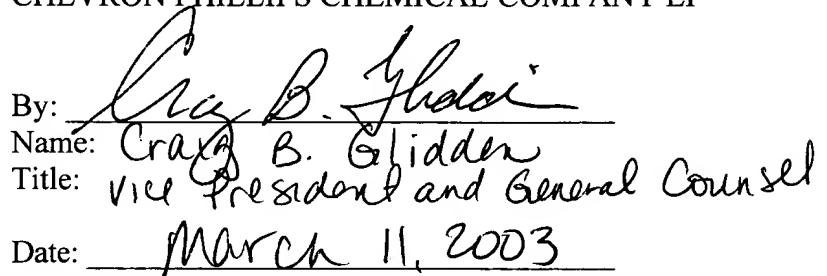 CHEVRON PHILLIPS CHEMICAL COMPANY LP
By: Craig B. Glidden
Name: Craig B. Glidden
Title: Vice President and General Counsel
Date: March 11, 2003